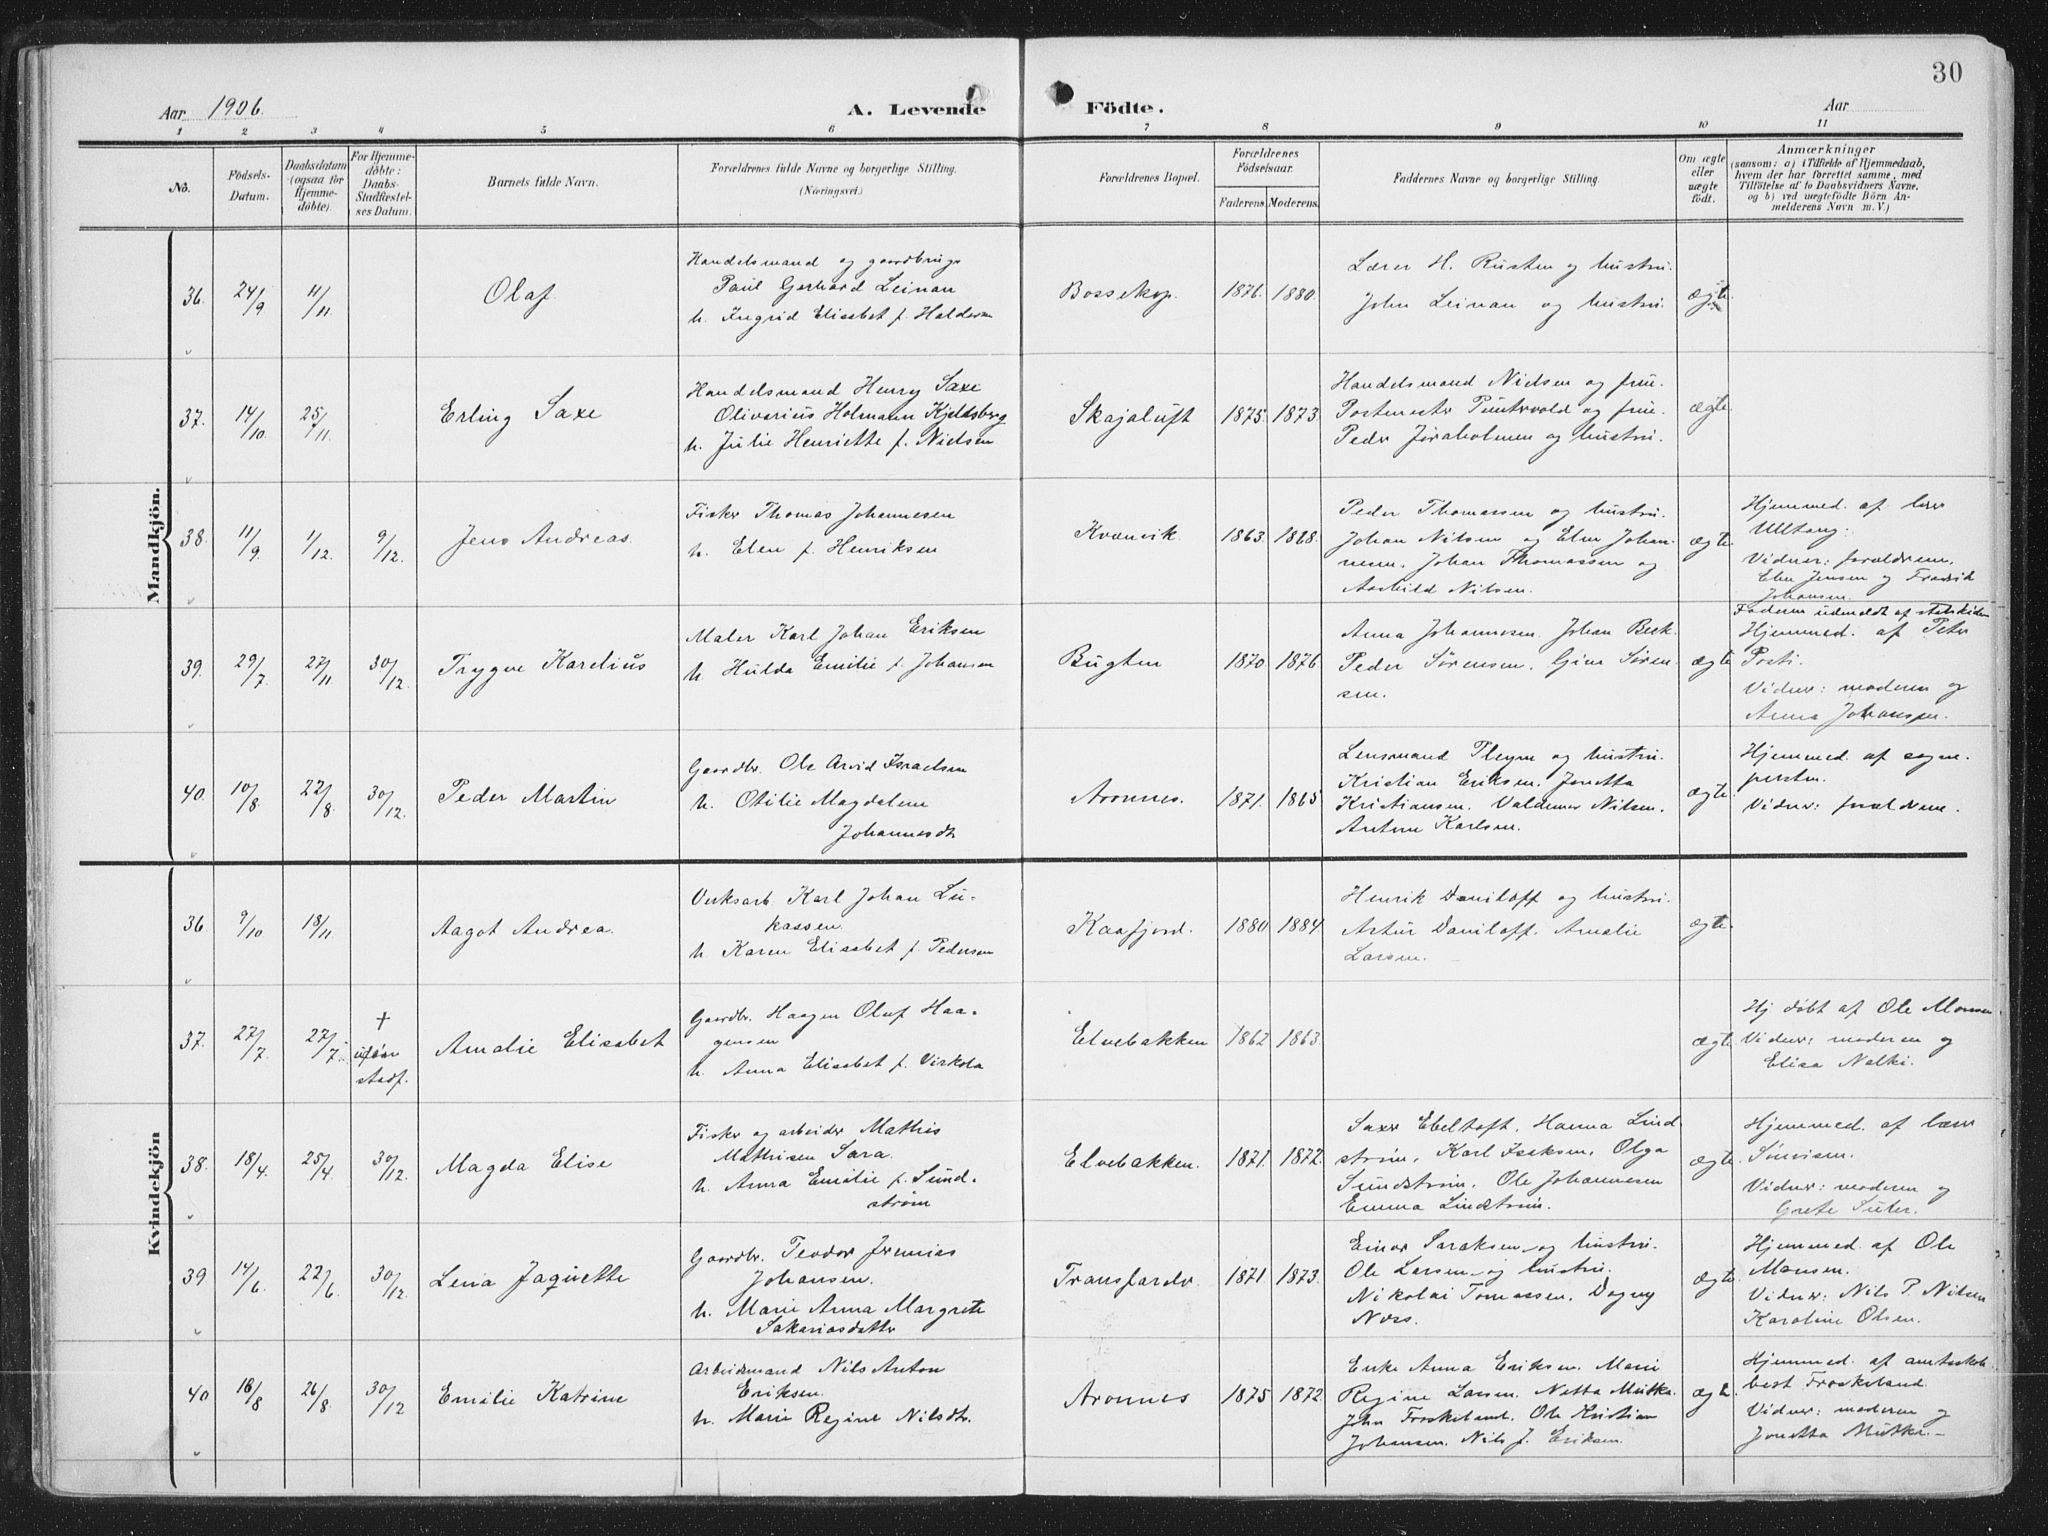 30
Aar 1906.
A. Levende Födte.
Aar
1 2 3 4 5 6 7 8 9 10 11
No.
Födsels-Datum.
Daabsdatum (ogsaa for Hjemme-döbte).
For Hjemme-döbte: Daabs-Stadfæstel-ses Datum.
Barnets fulde Navn.
Forældrenes fulde Navne og borgerlige Stilling. (Næringsvei.)
Forældrenes Bopæl.
Forældrenes Födselsaar.
Faderens. Moderens.
Faddernes Navne og borgerlige Stilling.
Om ægte eller uægte födt.
Anmærkninger
(saasom: a) i Tilfælde af Hjemmedaab,
hvem der har forrettet samme, med
Tilföielse af to Daabsvidners Navne,
og b) ved uægtefödte Börn An-
melderens Navn m.V.)
Mandkjön.
36. 24/9 11/11 Olaf.
Handelsmand og gaardbruge
Paul Gerhard Leinan
h. Ingrid Elisabet f. Haldorsen
Bossekop. 1876. 1880.
Lærer H. Rusten og hustru.
John Leinan og hustru.
ægte.
37. 14/10 25/11 Erling Saxe
Handelsmand Henry Saxe
Olivarius Holmann Kjeldsberg
h. Julie Henriette f. Nielsen
Skajaluft 1875. 1873.
Handelsmand Nielsen og frue.
Postmester og frue.
Peder Joraholmen og hustru.
ægte.
38. 11/9 1/12. 9/12. Jens Andreas.
Fisker Thomas Johannesen
h. Elen f. Henriksen
Kvænvik. 1863. 1868.
Peder Thomassen og hustru.
Johan Nilsen og Elen Johan-
nesen. Johan Thomassen og
Aashild Nilsen.
ægte.
Hjemmed. af lærer
Ulltang.
Vidner: forældrene.
Elen Jensen og Fredrik
Johansen.
39. 29/7 27/11. 30/12. Trygve Karelius
Maler Karl Johan Eriksen
h. Hulda Emilie f. Johansen
Bugten 1870 1876.
Anna Johannesen. Johan Beck.
Peder Sørensen. Gine Søren-
sen.
ægte
Faderen udmeldt af statskirken
Hjemmed. af Peter
Posti.
Vidner: moderen og
Anna Johansen.
40. 10/8 22/8. 30/12. Peder Martin
Gaardbr. Ole Arvid Israelsen
h. Otilie Magdalene
Johannesdtr
Aronnes. 1871. 1865
Lensmand Pleym og hustru.
Kristian Eriksen. Jonetta
Kristiansen. Valdemar Nilsen.
Anton Karlsen.
ægte.
Hjemmed. af sogne-
presten.
Vidner: forældrene.
Kvindekjön
36 9/10 18/11. Aagot Andrea.
Verksarb. Karl Johan Lu-
kassen.
h. Karen Elisabet f. Pedersen
Kaafjord. 1880 1884.
Henrik Daniloff og hustru.
Artur Daniloff. Amalie
Larsen.
ægte.
37. 27/7 27/7. † uden stadf. Amalie Elisabet
Gaardbr. Haagen Oluf Haa-
gensen
h. Anna Elisabet f. Virkola
Elvebakken 1862 1863.
ægte.
Hj døbt af Ole Monsen
Vidner: moderen og
Elisa Nalki.
38. 18/4. 25/4. 30/12. Magda Elise
Fisker og arbeider Mathis
Mathisen Sara.
h. Anna Emilie f. Sund-
strøm
Elvebakken. 1871. 1872.
Saxe Ebeltoft. Hanna Lind
strøm. Karl Isaksen. Olga
Sundstrøm. Ole Johannesen
Emma Lindstrøm.
ægte.
Hjemmed. af lærer
Simisen.
Vidner: moderen og
Grete Suler.
39 14/6. 22/6. 30/12. Lena Jaquette
Gaardbr. Teodor Jeremias
Johansen.
h. Marie Anna Margrete
Sakariasdatter
Transfarelv 1871 1873.
Einar Saraksen og hustru.
Ole Larsen og hustru.
Nikolai Tomassen. Dagny
Næss.
ægte.
Hjemmed. af Ole
Monsen.
Vidner: Nils P. Nilsen
Karoline Olsen.
40 18/8 26/8. 30/12 Emilie Katrine
Arbeidsmand Nils Anton
Eriksen.
h. Marie Regine Nilsdtr.
Aronnes 1875 1872.
Enke Anna Eriksen. Marie
Regine Larsen. Netta Mutka.
John Froskeland. Ole Kristian
Johansen. Nils J. Eriksen.
ægte.
Hjemmed. af amtsskole-
best Froskeland.
Vidner: moderen og
Jonetta Mutka.